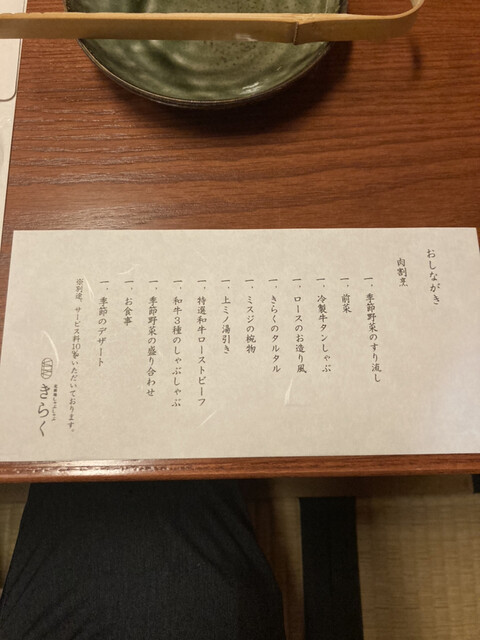 おしながき
肉割烹
一、季節野菜のすり流し
一、前菜
一、冷製牛タンしゃぶ
一、ロースのお造り風
一、きらくのタルタル
一、ミスジの椀物
一、上ミノ湯引き
一、特選和牛ローストビーフ
一、和牛3種のしゃぶしゃぶ
一、季節野菜の盛り合わせ
一、お食事
一、季節のデザート
※別途、サービス料10%いただいております。
きらく